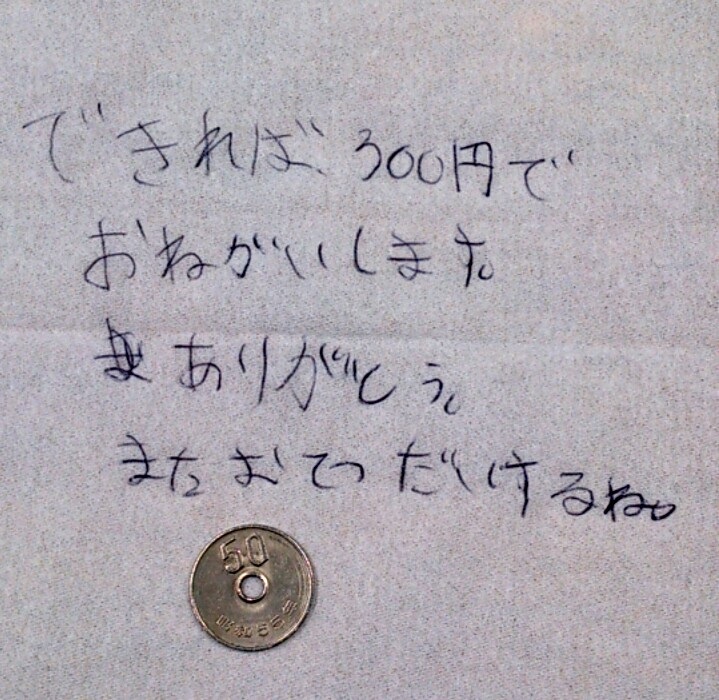 できれば、300円で
おねがいします。
ありがとう。
またおてつだいするね。
50
昭和55年